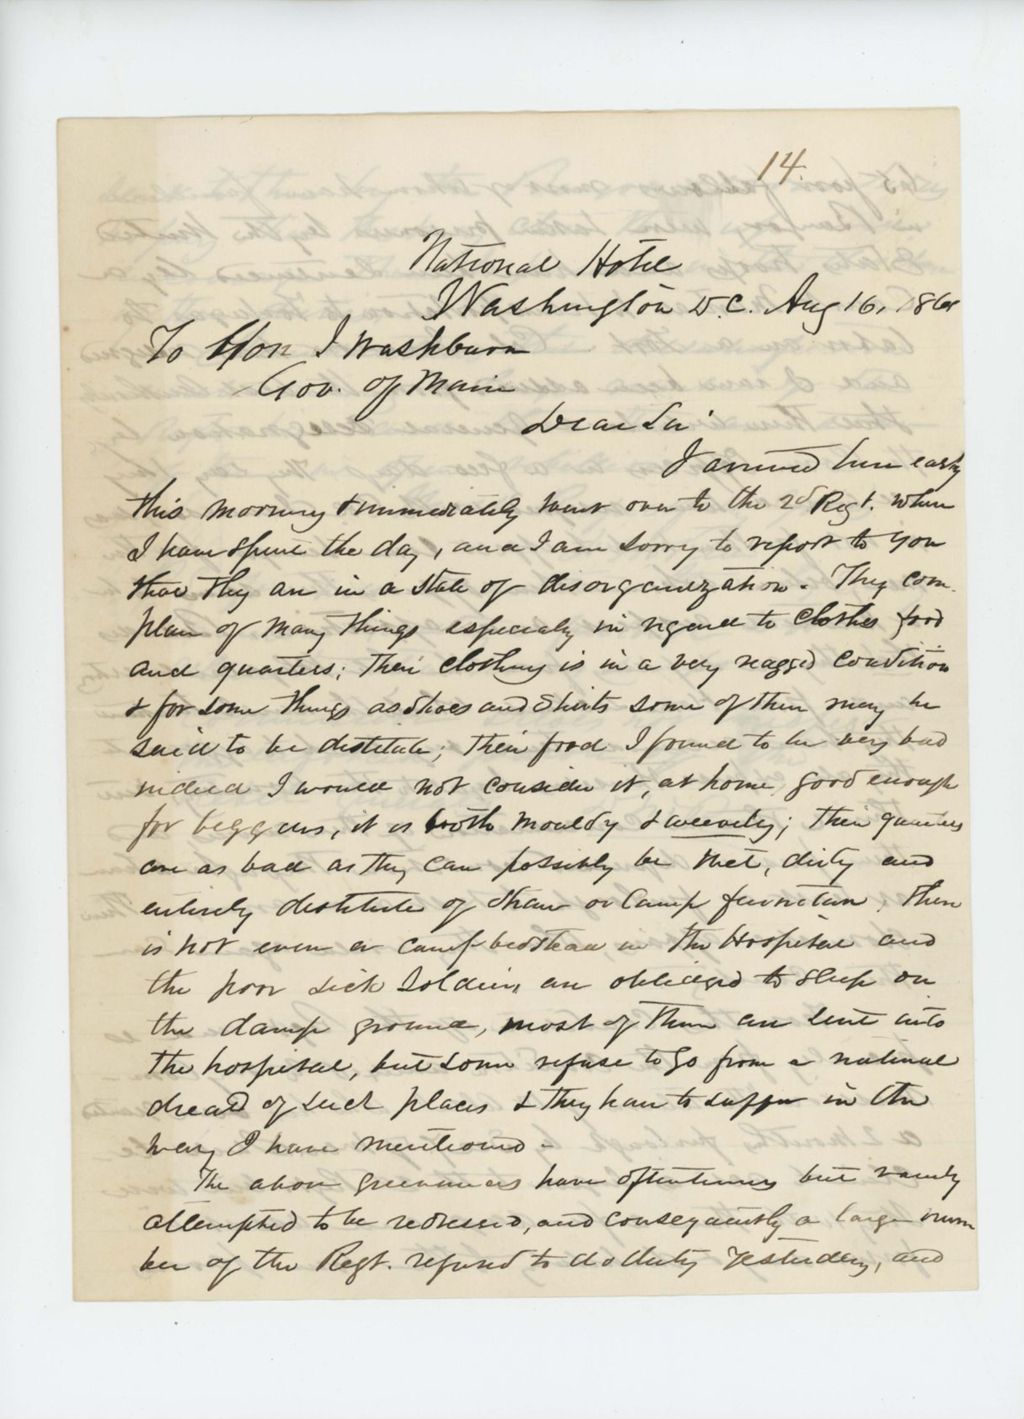 14.
National Hotel
Washington D.C. Aug 16, 1861
To Hon I Washburn
Gov. of Maine
Dear Sir
I arrived here early
this morning & immediately went over to the 2d Regt. where
I have spent the day, and I am sorry to report to you
that they are in a state of disorganization. They com
plain of many things especially in regard to clothes food
and quarters; their clothing is in a very ragged condition
& for some things as shoes and shirts some of them may be
said to be destitute; their food I found to be very bad
indeed I would not consider it, at home, good enough
for beggers, it is both mouldy & weevely; their quarters
are as bad as they can possibly be wet, dirty and
entirely destitute of straw or camp furniture, there
is not even a camp bedstead in the Hospital and
the poor sick soldiers are obliged to sleep on
the damp ground, most of them are sent into
the hospital, but some refuse to go from a natural
dread of such places & they have to suffer in the
way I have mentioned -
The above greivances have oftentimes but vainly
attempted to be redressed, and consequently a large num
ber of the Regt. refused to do duty yesterday, and